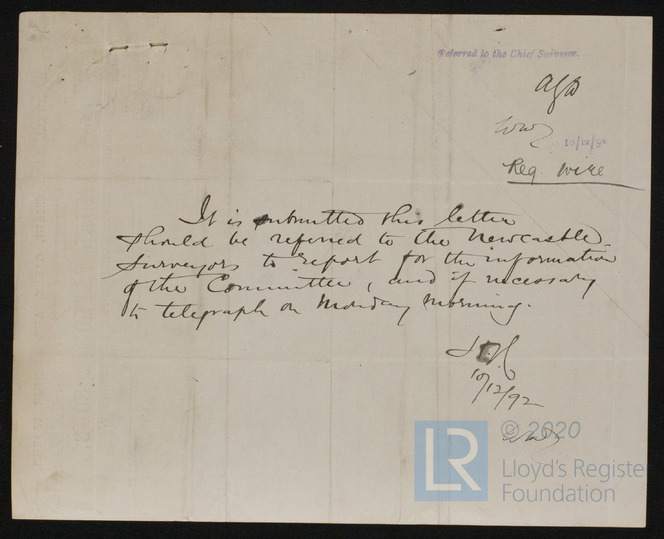 Referred to the Chief Surveyor.
10/12/92
Req. wire
It is submitted this letter
should be referred to the Newcastle
Surveyors to report for the information
of the Committee, and if necessary
to telegraph on Monday morning.
10/12/92
LR
© 2020
Lloyd's Register
Foundation